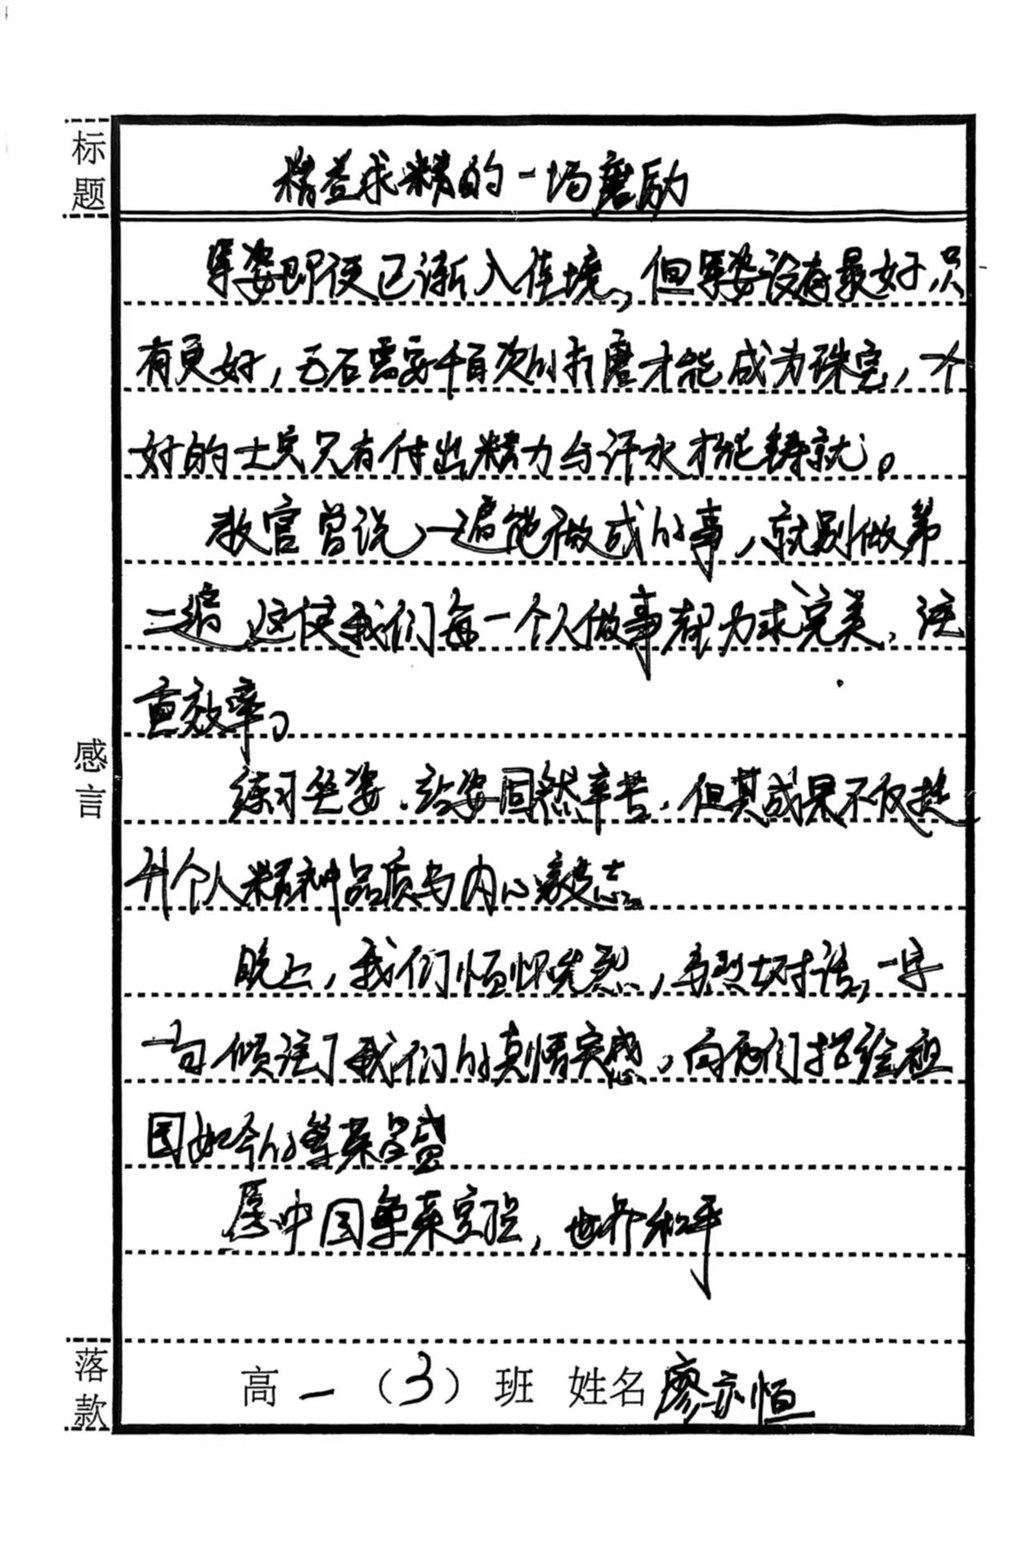 标题
精益求精的一场磨励
军姿即便已渐入佳境,但军姿没有最好只
有更好,玉石需要千百次的打磨才能成为珠宝,个
好的士兵只有付出精力与汗水才能铸就。
教官曾说,一遍能做成的事,就别做第
二遍,这使我们每一个人做事都力求完美,注
重效率。
感言
练习坐姿、站姿固然辛苦,但其成果不仅提
升个人精神品质与内心毅志。
晚上,我们恒怀先烈,与烈士对话,一字
一句倾注了我们的真情实感,向他们描绘祖
国如今的繁荣昌盛
愿中国繁荣富强,世界和平
落款
高一(3)班 姓名 廖亦恒